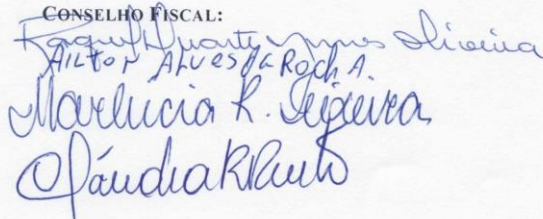 CONSELHO FISCAL:
Raquel Duarte Nunes Oliveira
AILTON ALVES DA ROCHA.
Marlucia R. Siqueira
Cláudia R